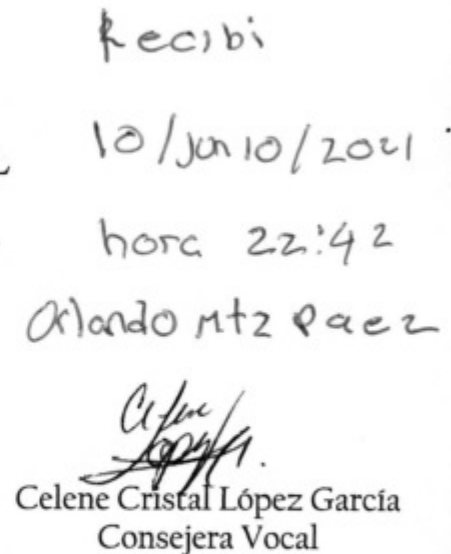 Recibi
10/Junio/2021
hora 22:42
Orlando Mtz Paez
Celene
López G.
Celene Cristal López García
Consejera Vocal